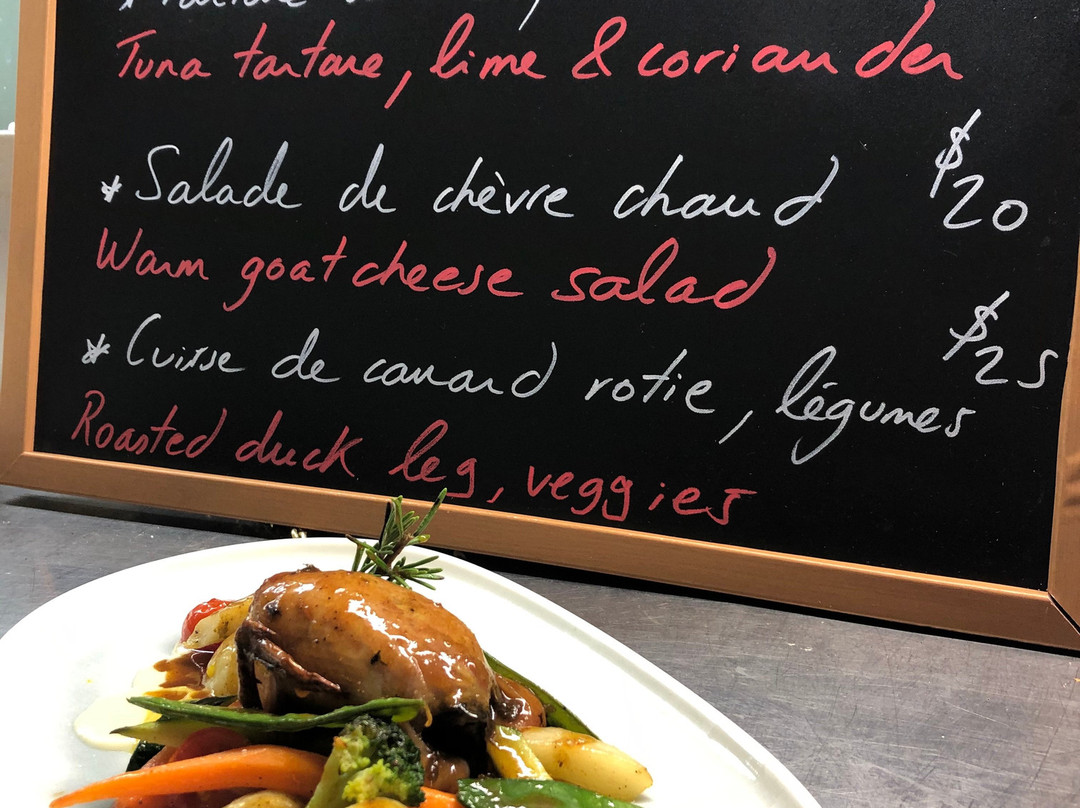 Tuna tartare, lime & coriander
* Salade de chèvre chaud $20
Warm goat cheese salad
* Cuisse de canard rotie, légumes $25
Roasted duck leg, veggies